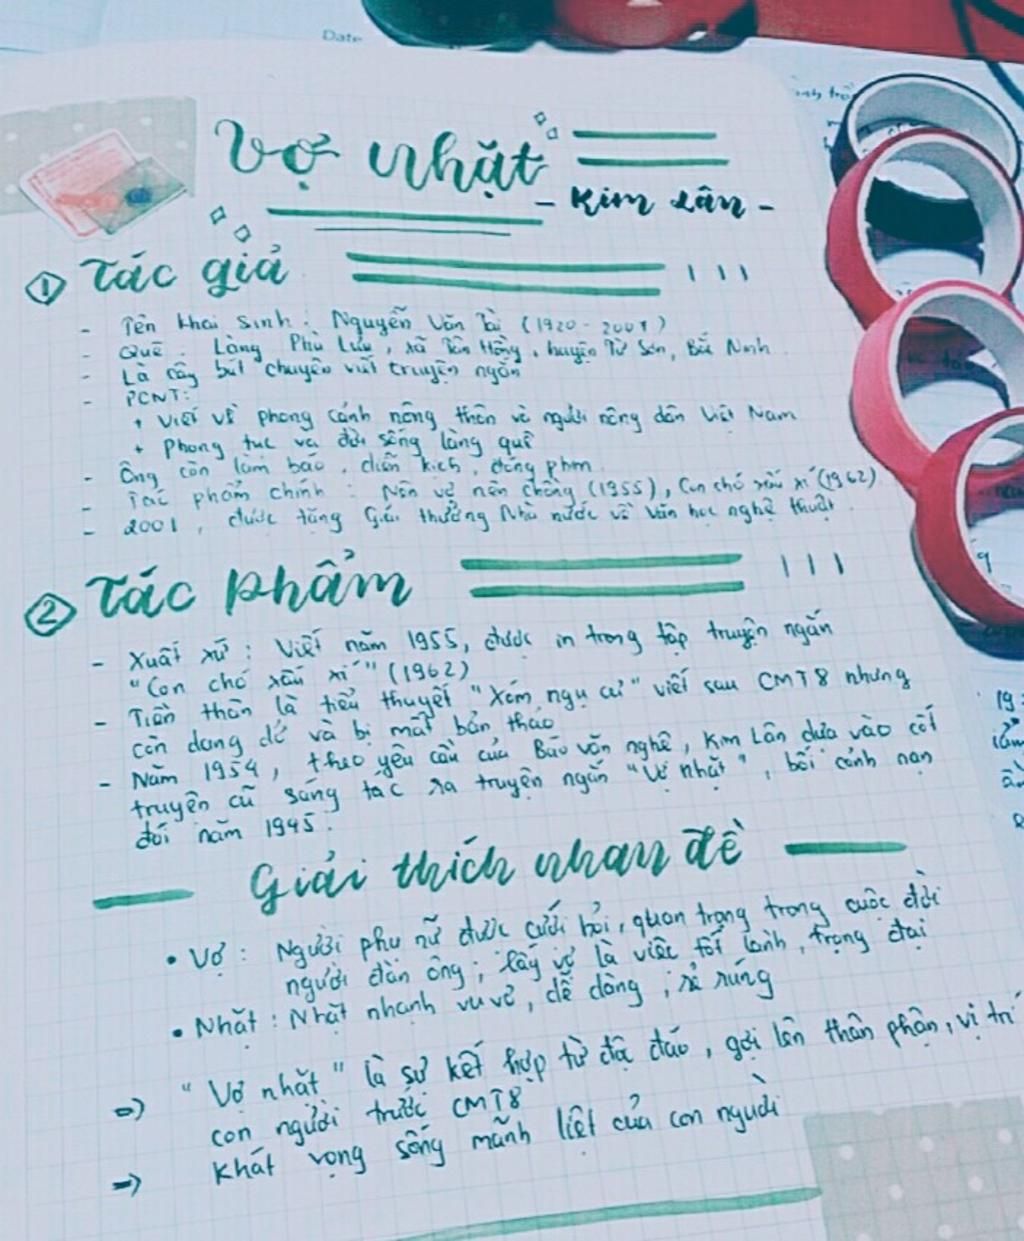 Date
Vợ nhặt
- Kim Lân -
1 Tác giả
- Tên khai sinh: Nguyễn Văn Tài (1920 - 2007)
- Quê: Làng Phù Lưu, xã Tân Hồng, huyện Từ Sơn, Bắc Ninh
- Là cây bút chuyên viết truyện ngắn
- PCNT:
+ Viết về phong cảnh nông thôn và người nông dân Việt Nam
+ Phong tục và đời sống làng quê
- Ông còn làm báo, diễn kịch, đóng phim.
- Tác phẩm chính: Nên vợ nên chồng (1955), Con chó xấu xí (1962)
- 2001, được tặng Giải thưởng Nhà nước về văn học nghệ thuật.
2 Tác phẩm
- Xuất xứ: Viết năm 1955, được in trong tập truyện ngắn
"Con chó xấu xí" (1962)
- Tiền thân là tiểu thuyết "Xóm ngụ cư" viết sau CMT8 nhưng
còn dang dở và bị mất bản thảo
- Năm 1954, theo yêu cầu của Báo văn nghệ, Kim Lân dựa vào cốt
truyện cũ sáng tác ra truyện ngắn "Vợ nhặt", bối cảnh nạn
đói năm 1945.
Giải thích nhan đề
• Vợ: Người phụ nữ được cưới hỏi, quan trọng trong cuộc đời
người đàn ông; lấy vợ là việc tốt lành, trọng đại
• Nhặt: Nhặt nhạnh vu vơ, dễ dàng, rẻ rúng
=> "Vợ nhặt" là sự kết hợp từ độc đáo, gợi lên thân phận, vị trí
con người trước CMT8
=> Khát vọng sống mãnh liệt của con người